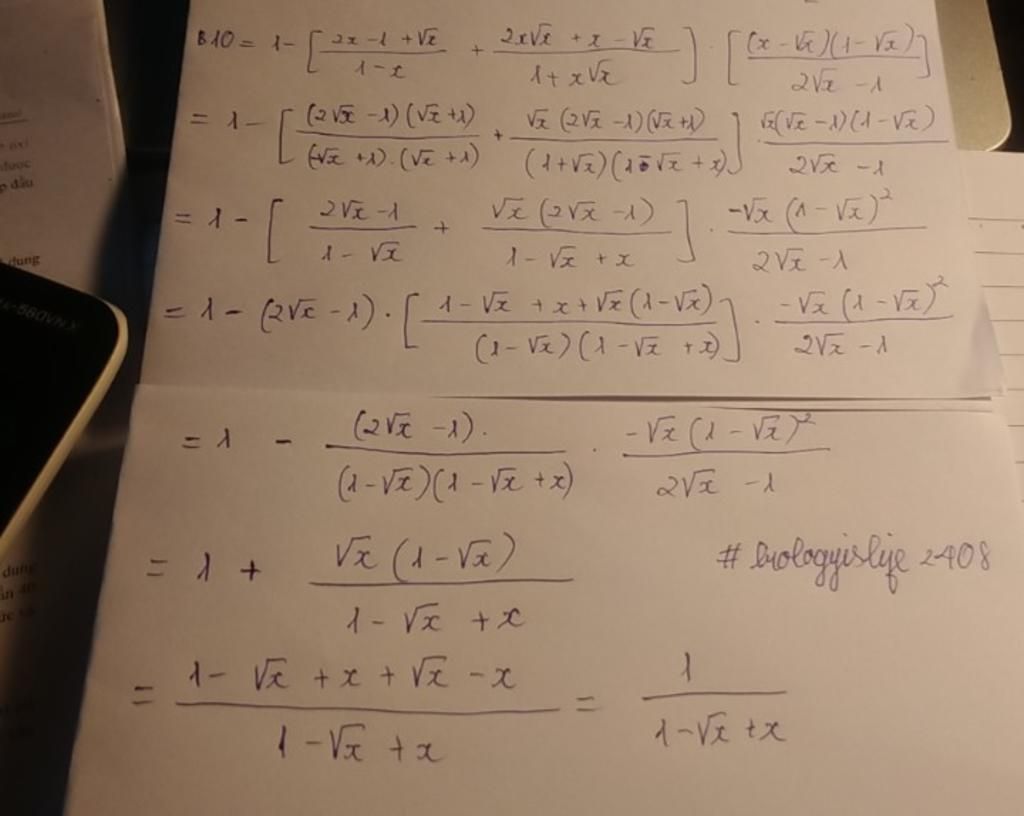 B10 = 1 - [ (2x - 1 + √x)/(1 - x) + (2x√x + x - √x)/(1 + x√x) ] . [ (x - √x)(1 - √x)/(2√x - 1) ]
= 1 - [ (2√x - 1)(√x + 1)/((-√x + 1).(√x + 1)) + √x(2√x - 1)(√x + 1)/((1 + √x)(1 - √x + x)) ] . √x(√x - 1)(1 - √x)/(2√x - 1)
= 1 - [ (2√x - 1)/(1 - √x) + √x(2√x - 1)/(1 - √x + x) ] . -√x(1 - √x)²/(2√x - 1)
= 1 - (2√x - 1) . [ (1 - √x + x + √x(1 - √x))/((1 - √x)(1 - √x + x)) ] . -√x(1 - √x)²/(2√x - 1)
= 1 - (2√x - 1)./((1 - √x)(1 - √x + x)) . -√x(1 - √x)²/(2√x - 1)
= 1 + √x(1 - √x)/(1 - √x + x) # biologyislife2408
= (1 - √x + x + √x - x)/(1 - √x + x) = 1/(1 - √x + x)